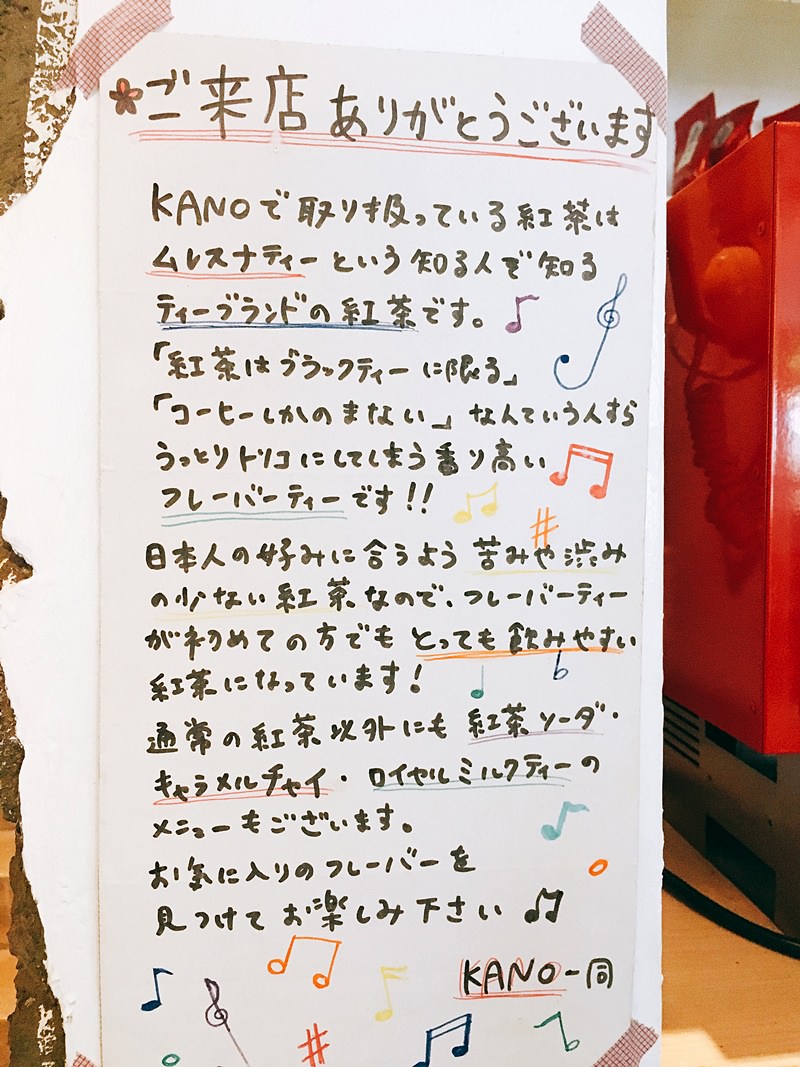 ご来店ありがとうございます
KANOで取り扱っている紅茶は
ムレスナティーという知る人ぞ知る
ティーブランドの紅茶です。
「紅茶はブラックティーに限る」
「コーヒーしかのまない」なんていう人すら
うっとりトリコにしてしまう香り高い
フレーバーティーです!!
日本人の好みに合うよう苦みや渋み
の少ない紅茶なので、フレーバーティー
が初めての方でもとっても飲みやすい
紅茶になっています!
通常の紅茶以外にも紅茶ソーダ・
キャラメルチャイ・ロイヤルミルクティーの
メニューもございます。
お気に入りのフレーバーを
見つけてお楽しみ下さい
KANO一同